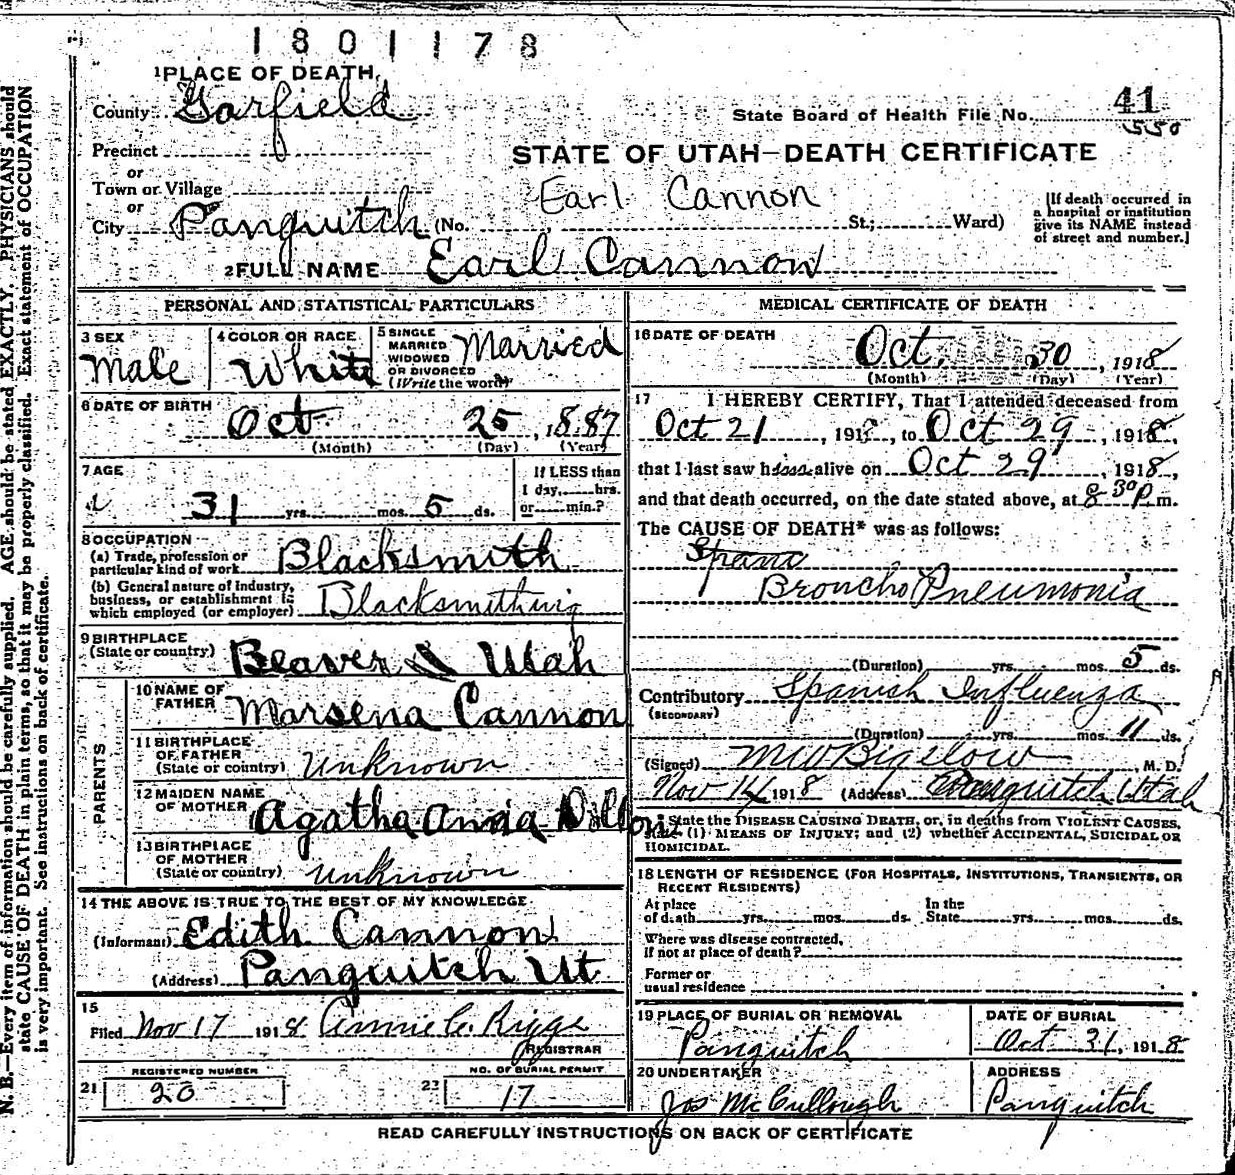 1801178
1 PLACE OF DEATH
County Garfield
State Board of Health File No. 41
550
Precinct
or
STATE OF UTAH—DEATH CERTIFICATE
Town or Village
or
Earl Cannon
City Panguitch (No. St.; Ward)
[If death occurred in
a hospital or institution
give its NAME instead
of street and number.]
2 FULL NAME Earl Cannon
PERSONAL AND STATISTICAL PARTICULARS
3 SEX
Male
4 COLOR OR RACE
White
5 SINGLE
MARRIED
WIDOWED
OR DIVORCED
(Write the word)
Married
6 DATE OF BIRTH
Oct 25, 1887
(Month) (Day) (Year)
7 AGE
31 yrs. mos. 5 ds.
If LESS than
1 day, hrs.
or min.?
8 OCCUPATION
(a) Trade, profession or
particular kind of work Blacksmith
(b) General nature of industry,
business, or establishment in
which employed (or employer) Blacksmithing
9 BIRTHPLACE
(State or country) Beaver Utah
PARENTS
10 NAME OF
FATHER Marsena Cannon
11 BIRTHPLACE
OF FATHER
(State or country) Unknown
12 MAIDEN NAME
OF MOTHER Agatha Annia
13 BIRTHPLACE
OF MOTHER
(State or country) Unknown
14 THE ABOVE IS TRUE TO THE BEST OF MY KNOWLEDGE
(Informant) Edith Cannon
(Address) Panguitch Ut
15
Filed Nov 17 1918 Annie C. Riggs
REGISTRAR
21 REGISTERED NUMBER
20
22 NO. OF BURIAL PERMIT
17
MEDICAL CERTIFICATE OF DEATH
16 DATE OF DEATH
Oct. 30, 1918
(Month) (Day) (Year)
17 I HEREBY CERTIFY, That I attended deceased from
Oct 21, 191, to Oct 29, 1918,
that I last saw h alive on Oct 29, 1918,
and that death occurred, on the date stated above, at 8 30 P m.
The CAUSE OF DEATH* was as follows:
Broncho Pneumonia
(Duration) yrs. mos. 5 ds.
Contributory Spanish Influenza
(SECONDARY)
(Duration) yrs. mos. 11 ds.
(Signed) MW Bigelow M. D.
Nov 14 1918 (Address) Panguitch Utah
State the DISEASE CAUSING DEATH, or, in deaths from VIOLENT CAUSES,
state (1) MEANS OF INJURY; and (2) whether ACCIDENTAL, SUICIDAL OR
HOMICIDAL.
18 LENGTH OF RESIDENCE (FOR HOSPITALS, INSTITUTIONS, TRANSIENTS, OR
RECENT RESIDENTS)
At place
of death yrs. mos. ds.
In the
State yrs. mos. ds.
Where was disease contracted,
if not at place of death?
Former or
usual residence
19 PLACE OF BURIAL OR REMOVAL
Panguitch
DATE OF BURIAL
Oct 31, 1918
20 UNDERTAKER
Jos McCullough
ADDRESS
Panguitch
READ CAREFULLY INSTRUCTIONS ON BACK OF CERTIFICATE
N. B.—Every item of information should be carefully supplied. AGE should be stated EXACTLY. PHYSICIANS should
state CAUSE OF DEATH in plain terms, so that it may be properly classified. Exact statement of OCCUPATION
is very important. See instructions on back of certificate.